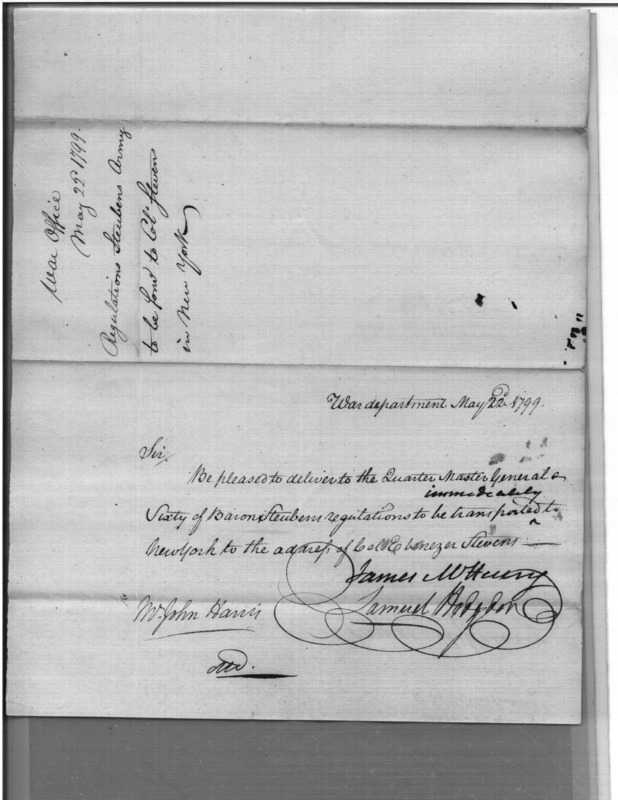 War Office
May 22d 1799.
Regulations Steubens Army
to be ford to Col Stevens
in New York
War department May 22d 1799.
Sir
Be pleased to deliver to the Quarter Master General
immediately
Sixty of Baron Steubens regulations to be transported to
New York to the address of Col Ebenezer Stevens
James McHenry
Samuel Hodgdon
Mr. John Harris